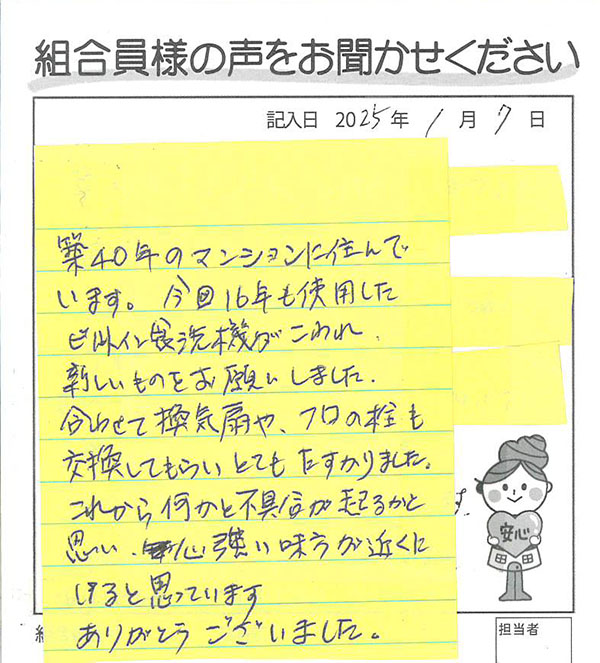 組合員様の声をお聞かせください
記入日 2025年 1月 7日
築40年のマンションに住んで
います。今回16年も使用した
ビルトイン食洗機がこわれ、
新しいものをお願いしました。
合わせて換気扇や、フロの栓も
交換してもらいとてもたすかりました。
これから何かと不具合が起るかと
思い、心強い味方が近くに
いると思っています
ありがとうございました。
す。
安心
組
担当者